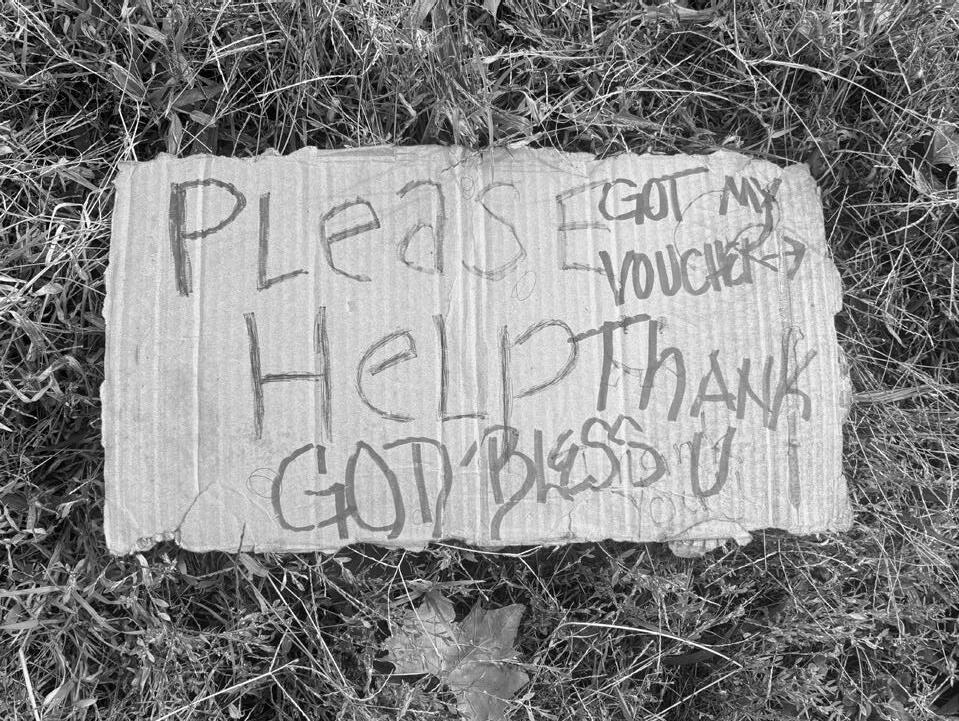 PLeasE GOT MY
VOUCHER→
HeLP ThANK
GOD BLeSS U